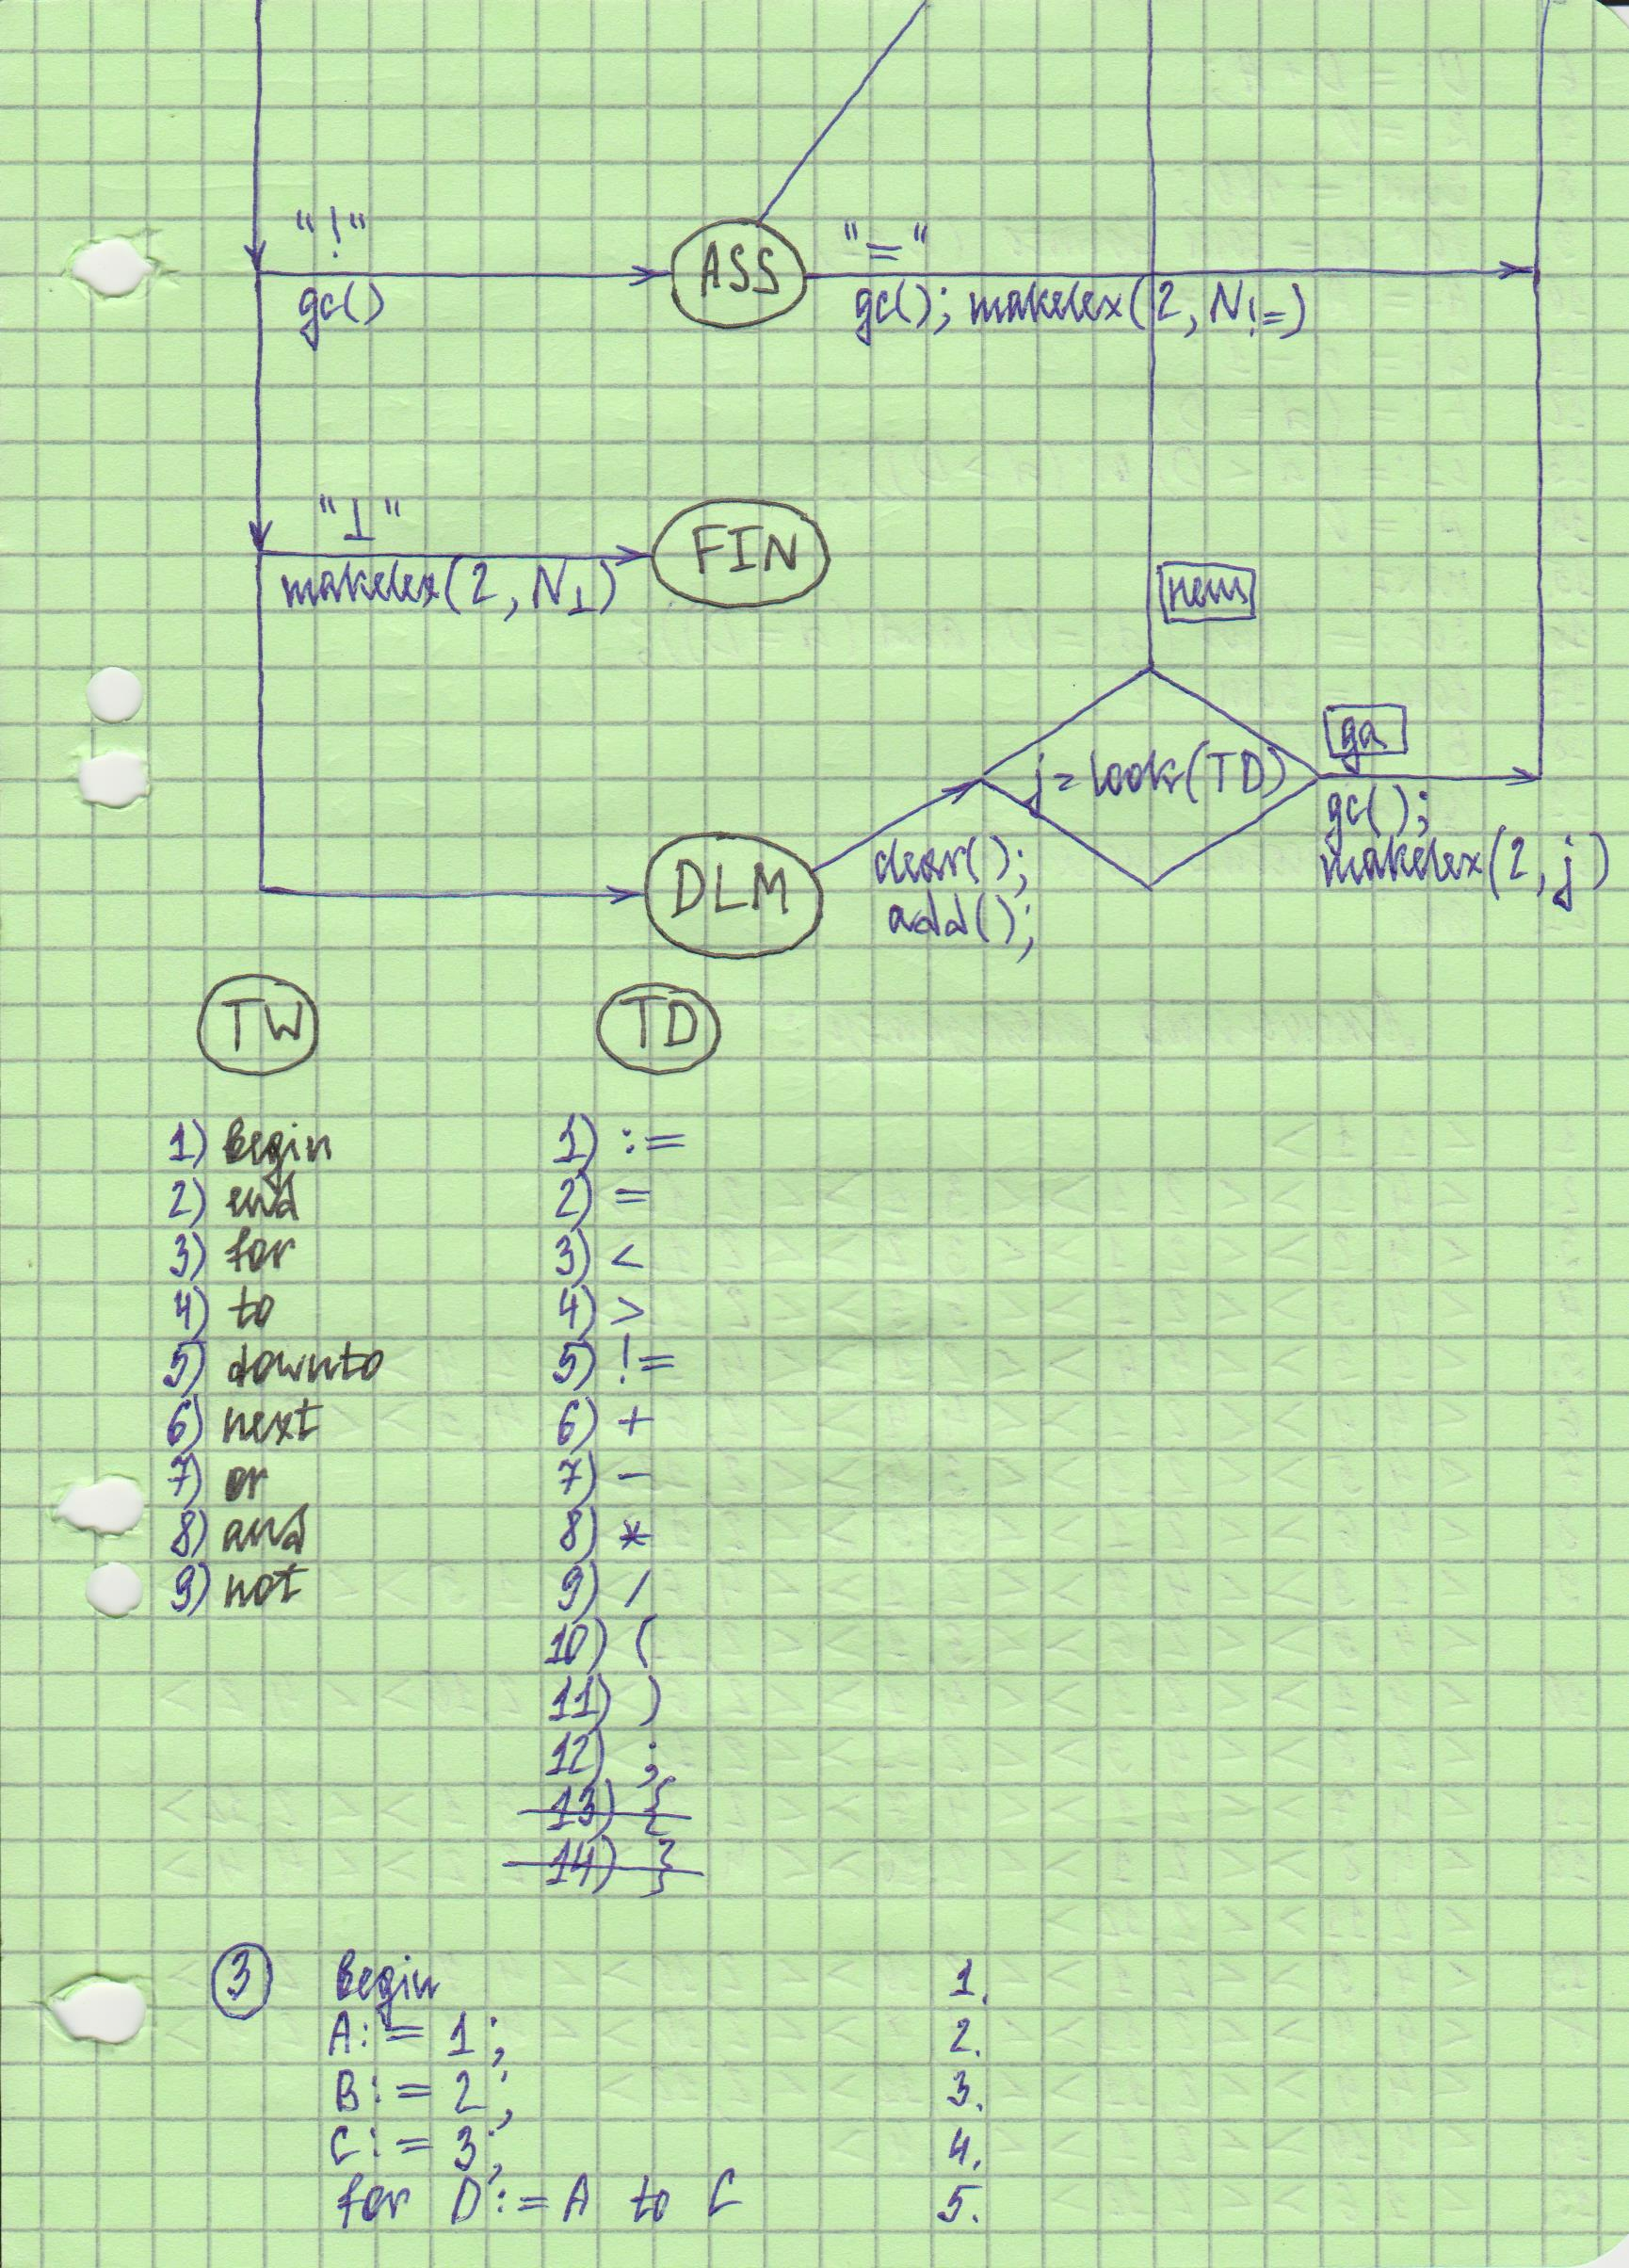 "!"
gc()
ASS
"="
gc(); makelex(2, N!=)
"⊥"
makelex(2, N⊥)
FIN
нет
j=look(TD)
да
gc();
makelex(2, j)
DLM
clear();
add();
TW
TD
1) begin
2) end
3) for
4) to
5) downto
6) next
7) or
8) and
9) not
1) :=
2) =
3) <
4) >
5) !=
6) +
7) -
8) *
9) /
10) (
11) )
12) ;
13) {
14) }
3
begin 1.
A:= 1; 2.
B:= 2; 3.
C:= 3; 4.
for D:=A to C 5.